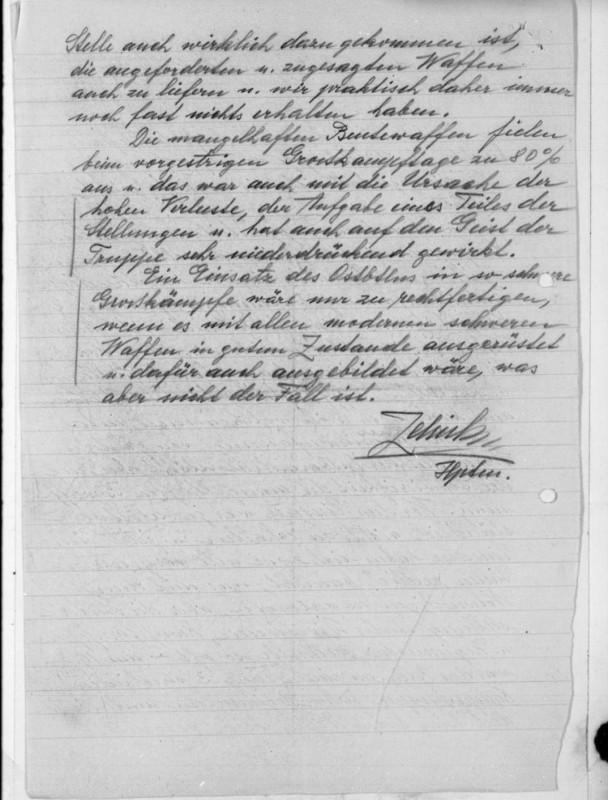 Stelle auch wirklich dazu gekommen ist,
die angeforderten u. zugesagten Waffen
auch zu liefern u. wir praktisch daher immer
noch fast nichts erhalten haben.
Die mangelhaften Beutewaffen fielen
beim vorgestrigen Grosskampftage zu 80%
aus u. das war auch mit die Ursache der
hohen Verluste, der Aufgabe eines Teiles der
Stellungen u. hat auch auf den Geist der
Truppe sehr niederdrückend gewirkt.
Ein Einsatz des Ostbtlns in so schwere
Grosskämpfe wäre nur zu rechtfertigen,
wenn es mit allen modernen schweren
Waffen in gutem Zustande ausgerüstet
u. dafür auch ausgebildet wäre, was
aber nicht der Fall ist.
Hptm.